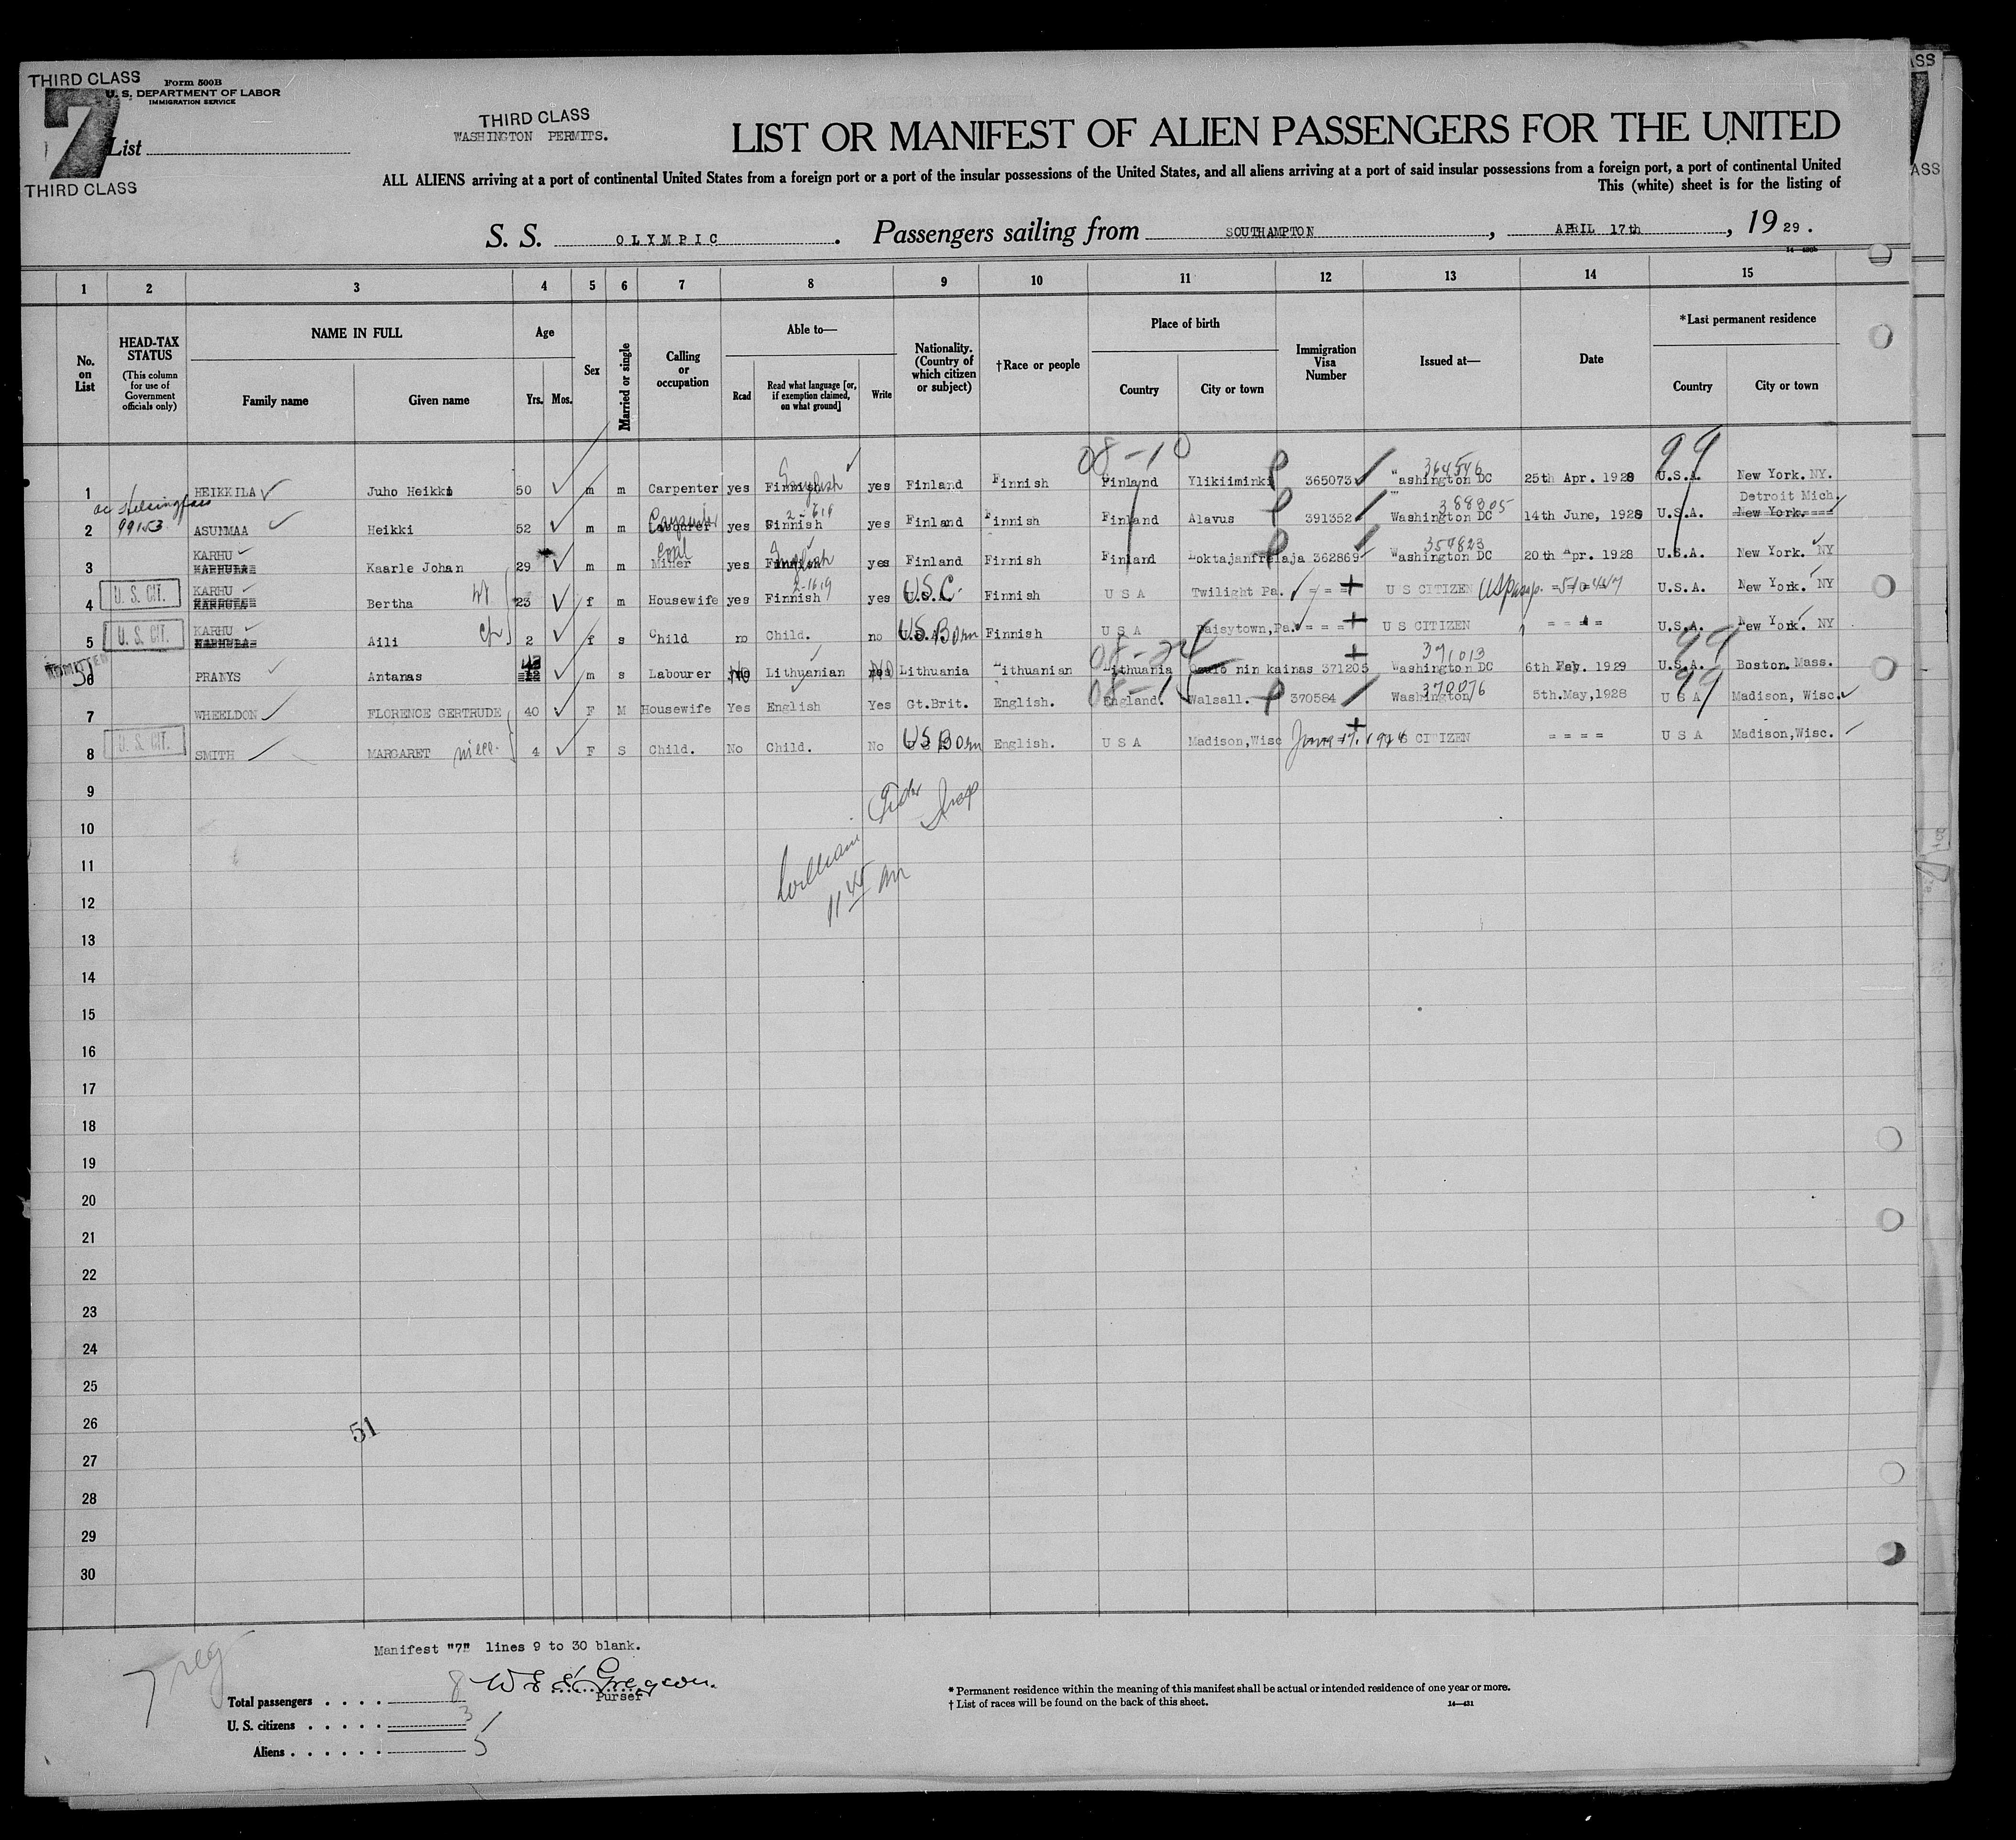 THIRD CLASS
Form 500B
U. S. DEPARTMENT OF LABOR
IMMIGRATION SERVICE
7
List
THIRD CLASS
THIRD CLASS
WASHINGTON PERMITS.
LIST OR MANIFEST OF ALIEN PASSENGERS FOR THE UNITED
ALL ALIENS arriving at a port of continental United States from a foreign port or a port of the insular possessions of the United States, and all aliens arriving at a port of said insular possessions from a foreign port, a port of continental United
This (white) sheet is for the listing of
S. S. OLYMPIC. Passengers sailing from SOUTHAMPTON, APRIL 17th, 1929.
1 2 3 4 5 6 7 8 9 10 11 12 13 14 15
No. on List
HEAD-TAX STATUS
(This column for use of Government officials only)
NAME IN FULL
Family name Given name
Age
Yrs. Mos.
Sex
Married or single
Calling or occupation
Able to—
Read
Read what language [or, if exemption claimed, on what ground]
Write
Nationality. (Country of which citizen or subject)
†Race or people
Place of birth
Country City or town
Immigration Visa Number
Issued at—
Date
*Last permanent residence
Country City or town
08-10 99
364546
1 HEIKKILA Juho Heikki 50 m m Carpenter yes Finnish English yes Finland Finnish Finland Ylikiiminki 365073 Washington DC 25th Apr. 1928 U.S.A. New York. NY.
Helsingfors
99153
388805
Detroit Mich.
2 ASUNMAA Heikki 52 m m Labourer Carpenter yes Finnish yes Finland Finnish Finland Alavus 391352 Washington DC 14th June, 1928 U.S.A. New York.
KARHU
359823
3 KARHULA Kaarle Johan 29 m m Coal Miner yes Finnish English yes Finland Finnish Finland 362869 Washington DC 20th Apr. 1928 U.S.A. New York. NY
KARHU
U. S. CIT.
4 KARHULA Bertha wf 23 f m Housewife yes Finnish yes U.S.C. Finnish U S A Twilight Pa. = = = U S CITIZEN U.S.A. New York. NY
KARHU
U. S. CIT.
5 KARHULA Aili ch 2 f s Child no Child. no U.S. Born Finnish U S A Daisytown, Pa. = = = U S CITIZEN = = = = U.S.A. New York. NY
ADMITTED
08-24 99
371013
6 PRANYS Antanas 42 m s Labourer No Lithuanian No Lithuania Lithuanian Lithuania 371205 Washington DC 6th 1929 U.S.A. Boston. Mass.
08-15 99
370076
7 WHEELDON FLORENCE GERTRUDE 40 F M Housewife Yes English Yes Gt.Brit. English. England. Walsall. 370584 Washington 5th.May,1928 U S A Madison, Wisc.
U. S. CIT.
8 SMITH MARGARET niece 4 F S Child. No Child. No U.S. Born English. U S A Madison,Wisc U S CITIZEN = = = = U S A Madison,Wisc.
9
10
11 William
11 45 am
12
13
14
15
16
17
18
19
20
21
22
23
24
25
26
51
27
28
29
30
Manifest "7" lines 9 to 30 blank.
Purser
Total passengers 8
U. S. citizens 3
Aliens 5
* Permanent residence within the meaning of this manifest shall be actual or intended residence of one year or more.
† List of races will be found on the back of this sheet.
14—431